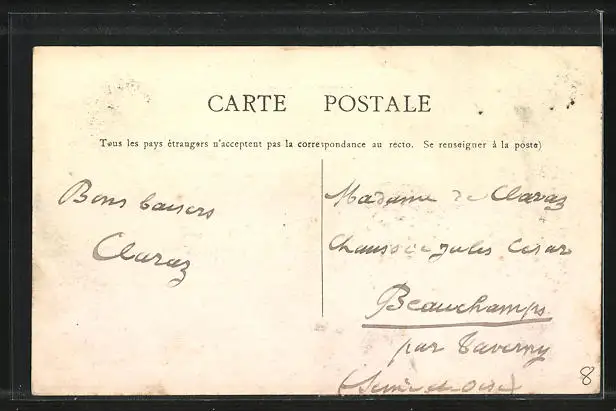 CARTE POSTALE
Tous les pays étrangers n'acceptent pas la correspondance au recto. Se renseigner à la poste)
Bons baisers
Claraz
Madame de Claraz
Chaussée Jules César
Beauchamps
par Taverny
(Seine et Oise)
8